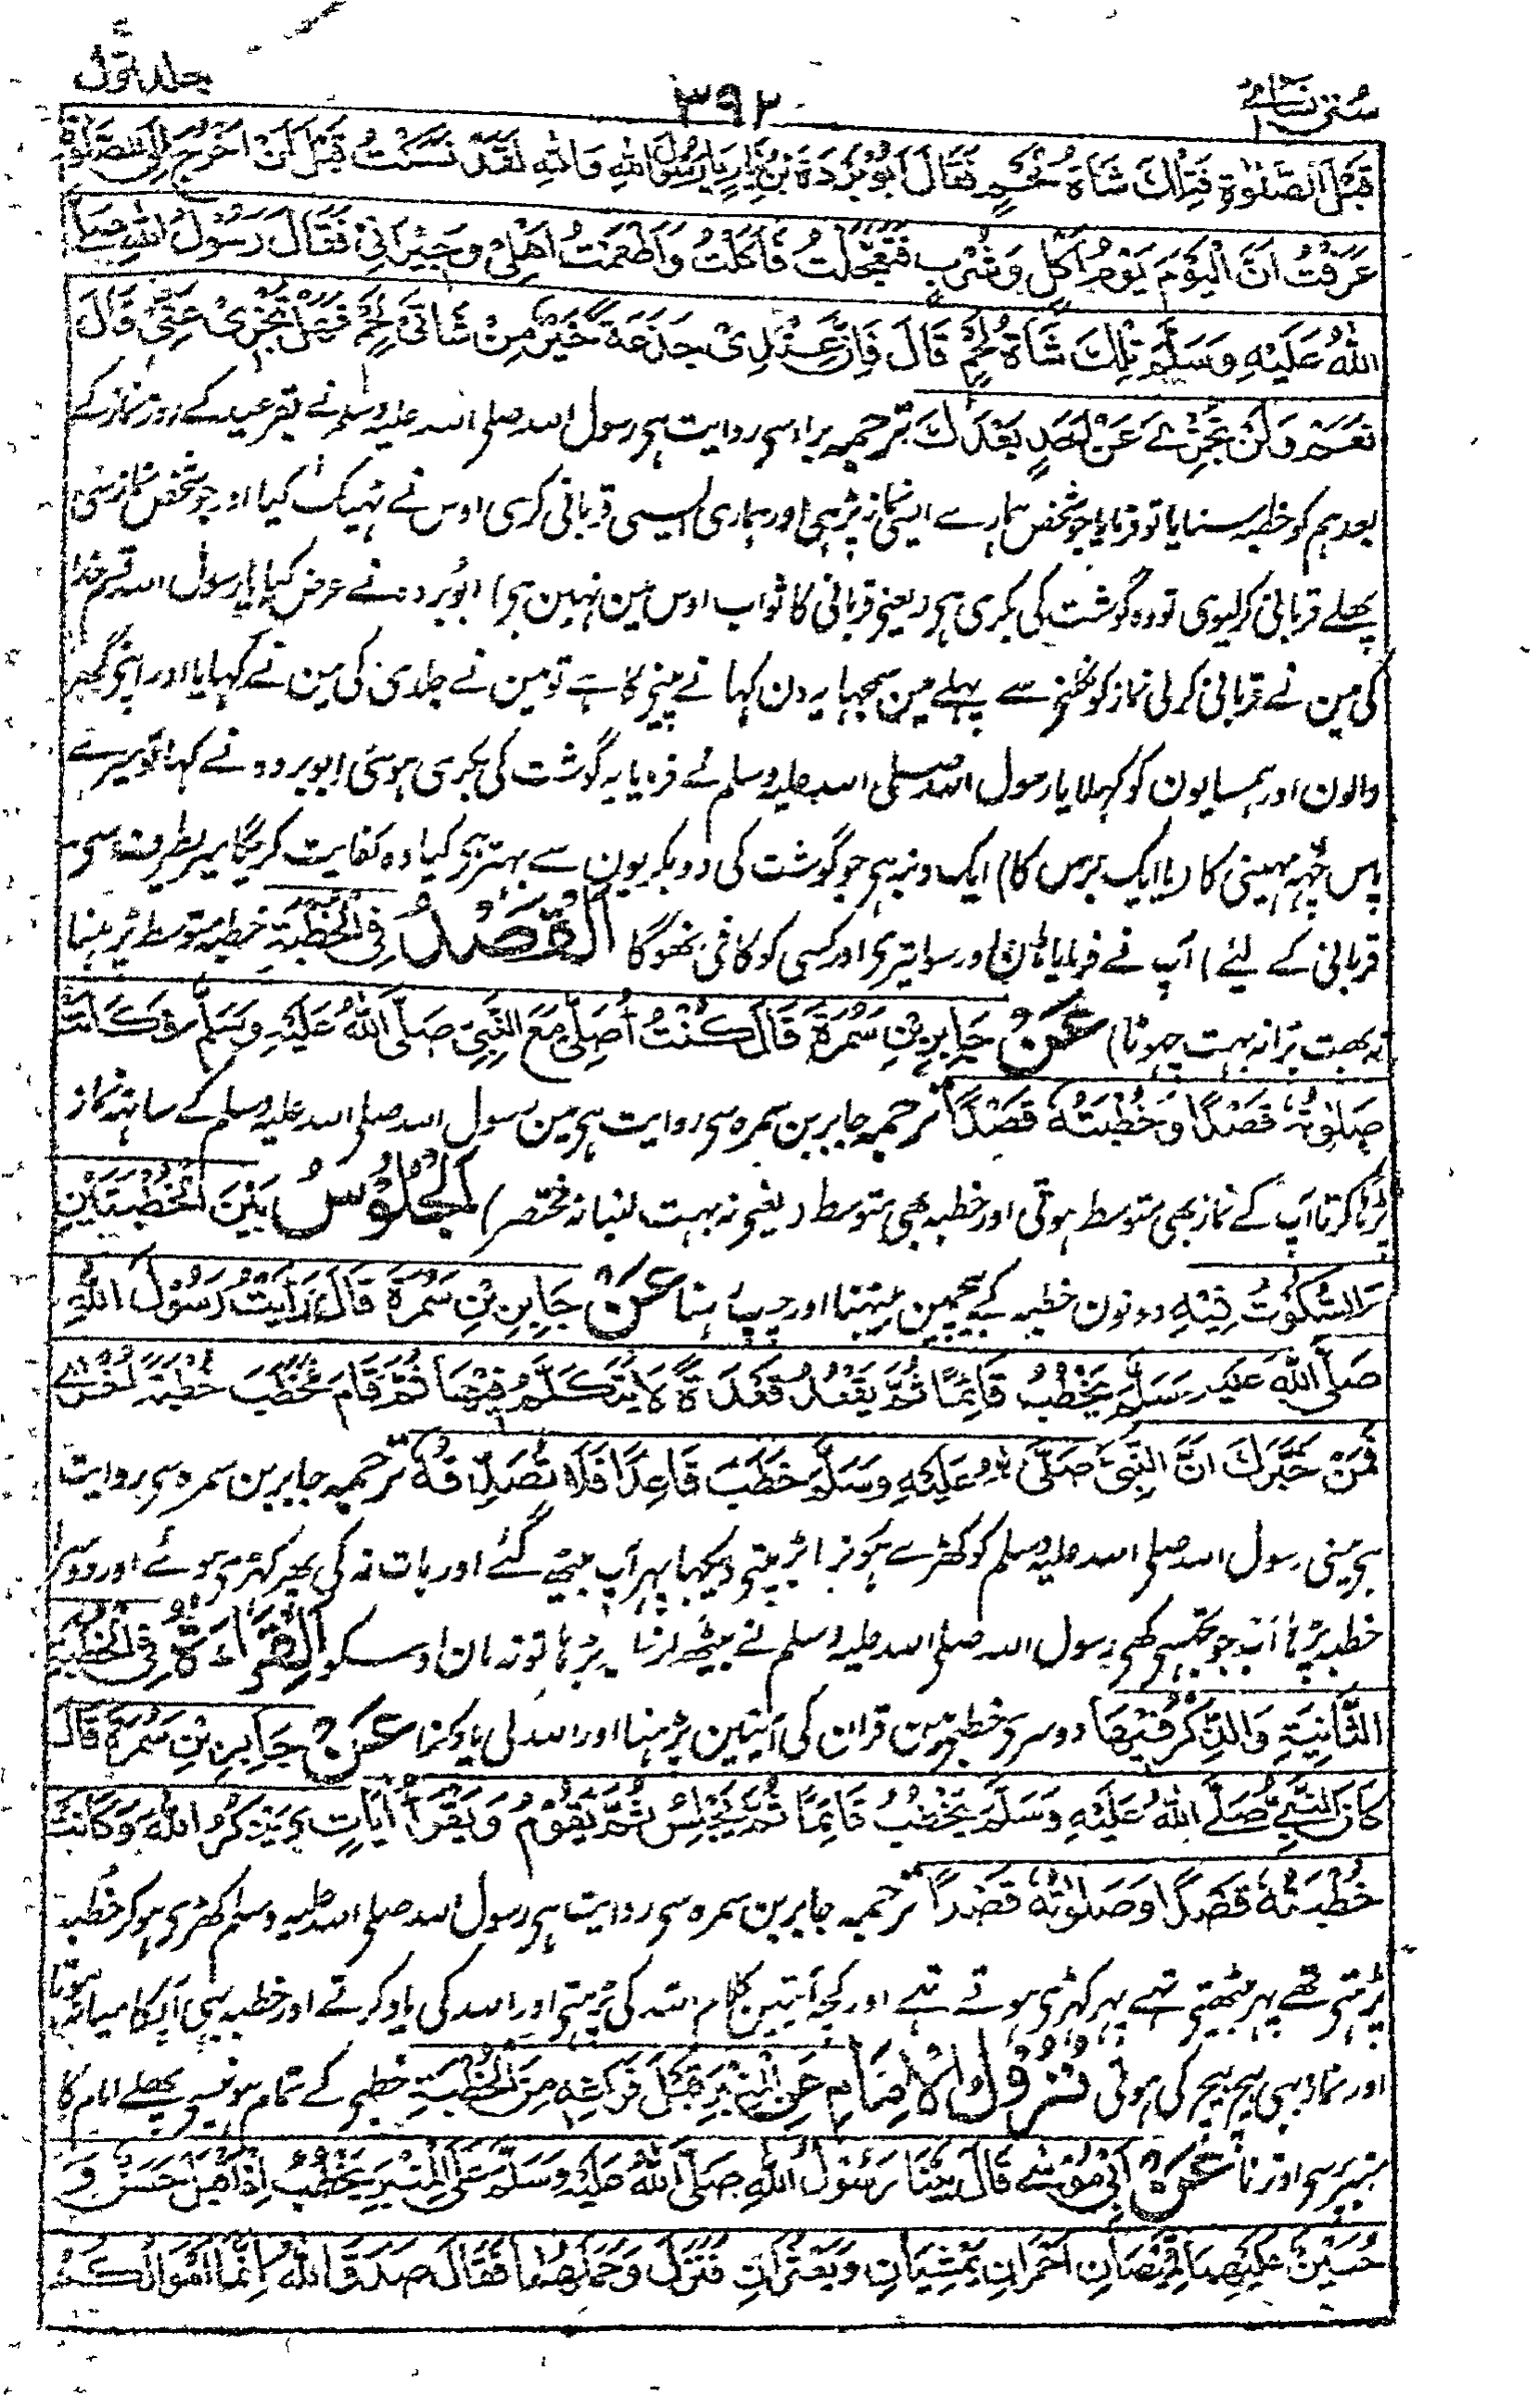 سنن نسائی ۳۹۲ جلد اول
قَبْلَ الصَّلٰوةِ فَتِلْكَ شَاةُ لَحْمٍ فَقَالَ اَبُوْ بُرْدَةَ بْنُ نِيَارٍ يَا رَسُوْلَ اللهِ وَاللهِ لَقَدْ نَسَكْتُ قَبْلَ اَنْ اَخْرُجَ اِلَى الصَّلٰوةِ
عَرَفْتُ اَنَّ الْيَوْمَ يَوْمُ اَكْلٍ وَشُرْبٍ فَتَعَجَّلْتُ فَاَكَلْتُ وَاَطْعَمْتُ اَهْلِيْ وَجِيْرَانِيْ فَقَالَ رَسُوْلُ اللهِ صَلَّى
اللهُ عَلَيْهِ وَسَلَّمَ تِلْكَ شَاةُ لَحْمٍ قَالَ فَاِنَّ عِنْدِيْ جَذَعَةً خَيْرٌ مِنْ شَاتَيْ لَحْمٍ فَهَلْ تُجْزِىْ عَنِّيْ قَالَ
نَعَمْ وَلَنْ تُجْزِئَ عَنْ اَحَدٍ بَعْدَكَ ترجمہ براءسی روایت ہی رسول اللہ صلی اللہ علیہ وسلم نے بقر عید کے روز نماز کے
بعد ہم کو خطبہ سنایا تو فرمایا جو شخص ہمارے ایسی نماز پڑہی اور ہماری ایسی قربانی کری اوس نے ٹہیک کیا اور جو شخص نماز سی
پھلے قربانی کرلیوی تو وہ گوشت کی بکری ہی (یعنی قربانی کا ثواب اوس مین نہین ہی) ابو بردہ نے عرض کیا یا رسول اللہ قسم خدا
کی مین نے قربانی کرلی نماز کو نکلنی سے پہلے مین سمجہا یہ دن کہانے پینی کا ہے تو مین نے جلدی کی مین نے کہایا اور اپنی گھر
والون اور ہمسایون کو کہلایا رسول اللہ صلی اللہ علیہ وسلم نے فرمایا یہ گوشت کی بکری ہوئی ابو بردہ نے کہا تو میرے
پاس چہہ مہینی کا (یا ایک برس کا) ایک دنبہ ہی جو گوشت کی دو بکریون سے بہتر ہی کیا وہ کفایت کریگا میریطرف سی
قربانی کے لیئے) آپ نے فرمایا ہان اور سوا تیری اور کسی کو کافی نہوگا اَلْقَصْدُ فِي الْخُطْبَةِ خطبہ متوسط پڑہنا
نہ بہت بڑا نہ بہت چہوٹا) عَنْ جَابِرِ بْنِ سَمُرَةَ قَالَ كُنْتُ اُصَلِّيْ مَعَ النَّبِيِّ صَلَّى اللهُ عَلَيْهِ وَسَلَّمَ وَكَانَتْ
صَلٰوتُهٗ قَصْدًا وَخُطْبَتُهٗ قَصْدًا ترجمہ جابر بن سمرہ سی روایت ہی مین رسول اللہ صلی اللہ علیہ وسلم کے ساتہہ نماز
پڑہا کرتا آپ کے نماز بھی متوسط ہوتی اور خطبہ بھی متوسط (یعنی نہ بہت لنبا نہ مختصر) اَلْجُلُوْسُ بَيْنَ الْخُطْبَتَيْنِ
وَالسُّكُوْتُ فِيْهِ دونون خطبہ کے بیچ مین بیٹہنا اور چپ رہنا عَنْ جَابِرِ بْنِ سَمُرَةَ قَالَ رَاَيْتُ رَسُوْلَ اللهِ
صَلَّى اللهُ عَلَيْهِ وَسَلَّمَ يَخْطُبُ قَائِمًا ثُمَّ يَقْعُدُ قَعْدَةً لَا يَتَكَلَّمُ فِيْهَا ثُمَّ قَامَ فَخَطَبَ خُطْبَةً اُخْرٰى
فَمَنْ خَبَّرَكَ اَنَّ النَّبِيَّ صَلَّى اللهُ عَلَيْهِ وَسَلَّمَ خَطَبَ قَاعِدًا فَلَا تُصَدِّقْهُ ترجمہ جابر بن سمرہ سی روایت
ہی مینی رسول اللہ صلی اللہ علیہ وسلم کو کھڑے ہو کر پڑہتی دیکہا پہر آپ بیٹہے گئے اور بات نہ کی پھر کہڑی ہوئے اور دوسرا
خطبہ پڑہا اب جو تجہسی کھی رسول اللہ صلی اللہ علیہ وسلم نے بیٹھے پڑہا تو نہ مان اوسکو اَلْقِرَاءَةُ فِي الْخُطْبَةِ
الثَّانِيَةِ وَالذِّكْرُ فِيْهَا دوسری خطبی مین قران کی آیتین پڑہنا اور اللہ کی یاد کرنا عَنْ جَابِرِ بْنِ سَمُرَةَ قَالَ
كَانَ النَّبِيُّ صَلَّى اللهُ عَلَيْهِ وَسَلَّمَ يَخْطُبُ قَائِمًا ثُمَّ يَجْلِسُ ثُمَّ يَقُوْمُ وَيَقْرَاُ اٰيَاتٍ وَيَذْكُرُ اللهَ وَكَانَتْ
خُطْبَتُهٗ قَصْدًا وَصَلٰوتُهٗ قَصْدًا ترجمہ جابر بن سمرہ سی روایت ہی رسول اللہ صلی اللہ علیہ وسلم کھڑی ہو کر خطبہ
پڑہتی تھے پہر بیٹھتی تہے پہر کہڑی ہوتے تہے اور کچہ آیتین کلام اللہ کی پڑہتی اور اللہ کی یاد کرتے اور خطبہ بہی آپکا میانہ ہوتا
اور نماز بہی بیچ بیچ کی ہوتی نُزُوْلُ الْاِمَامِ عَنِ الْمِنْبَرِ قَبْلَ فَرَاغِهٖ مِنَ الْخُطْبَةِ خطبی کے تمام ہونیسی پھلے امام کا
منبر پر سی اوترنا عَنْ اَبِيْ مُوْسٰى قَالَ بَيْنَا رَسُوْلُ اللهِ صَلَّى اللهُ عَلَيْهِ وَسَلَّمَ عَلَى الْمِنْبَرِ يَخْطُبُ اِذْ اَقْبَلَ حَسَنٌ وَ
حُسَيْنٌ عَلَيْهِمَا قَمِيْصَانِ اَحْمَرَانِ يَمْشِيَانِ وَيَعْثُرَانِ فَنَزَلَ وَحَمَلَهُمَا فَقَالَ صَدَقَ اللهُ اِنَّمَا اَمْوَالُكُمْ